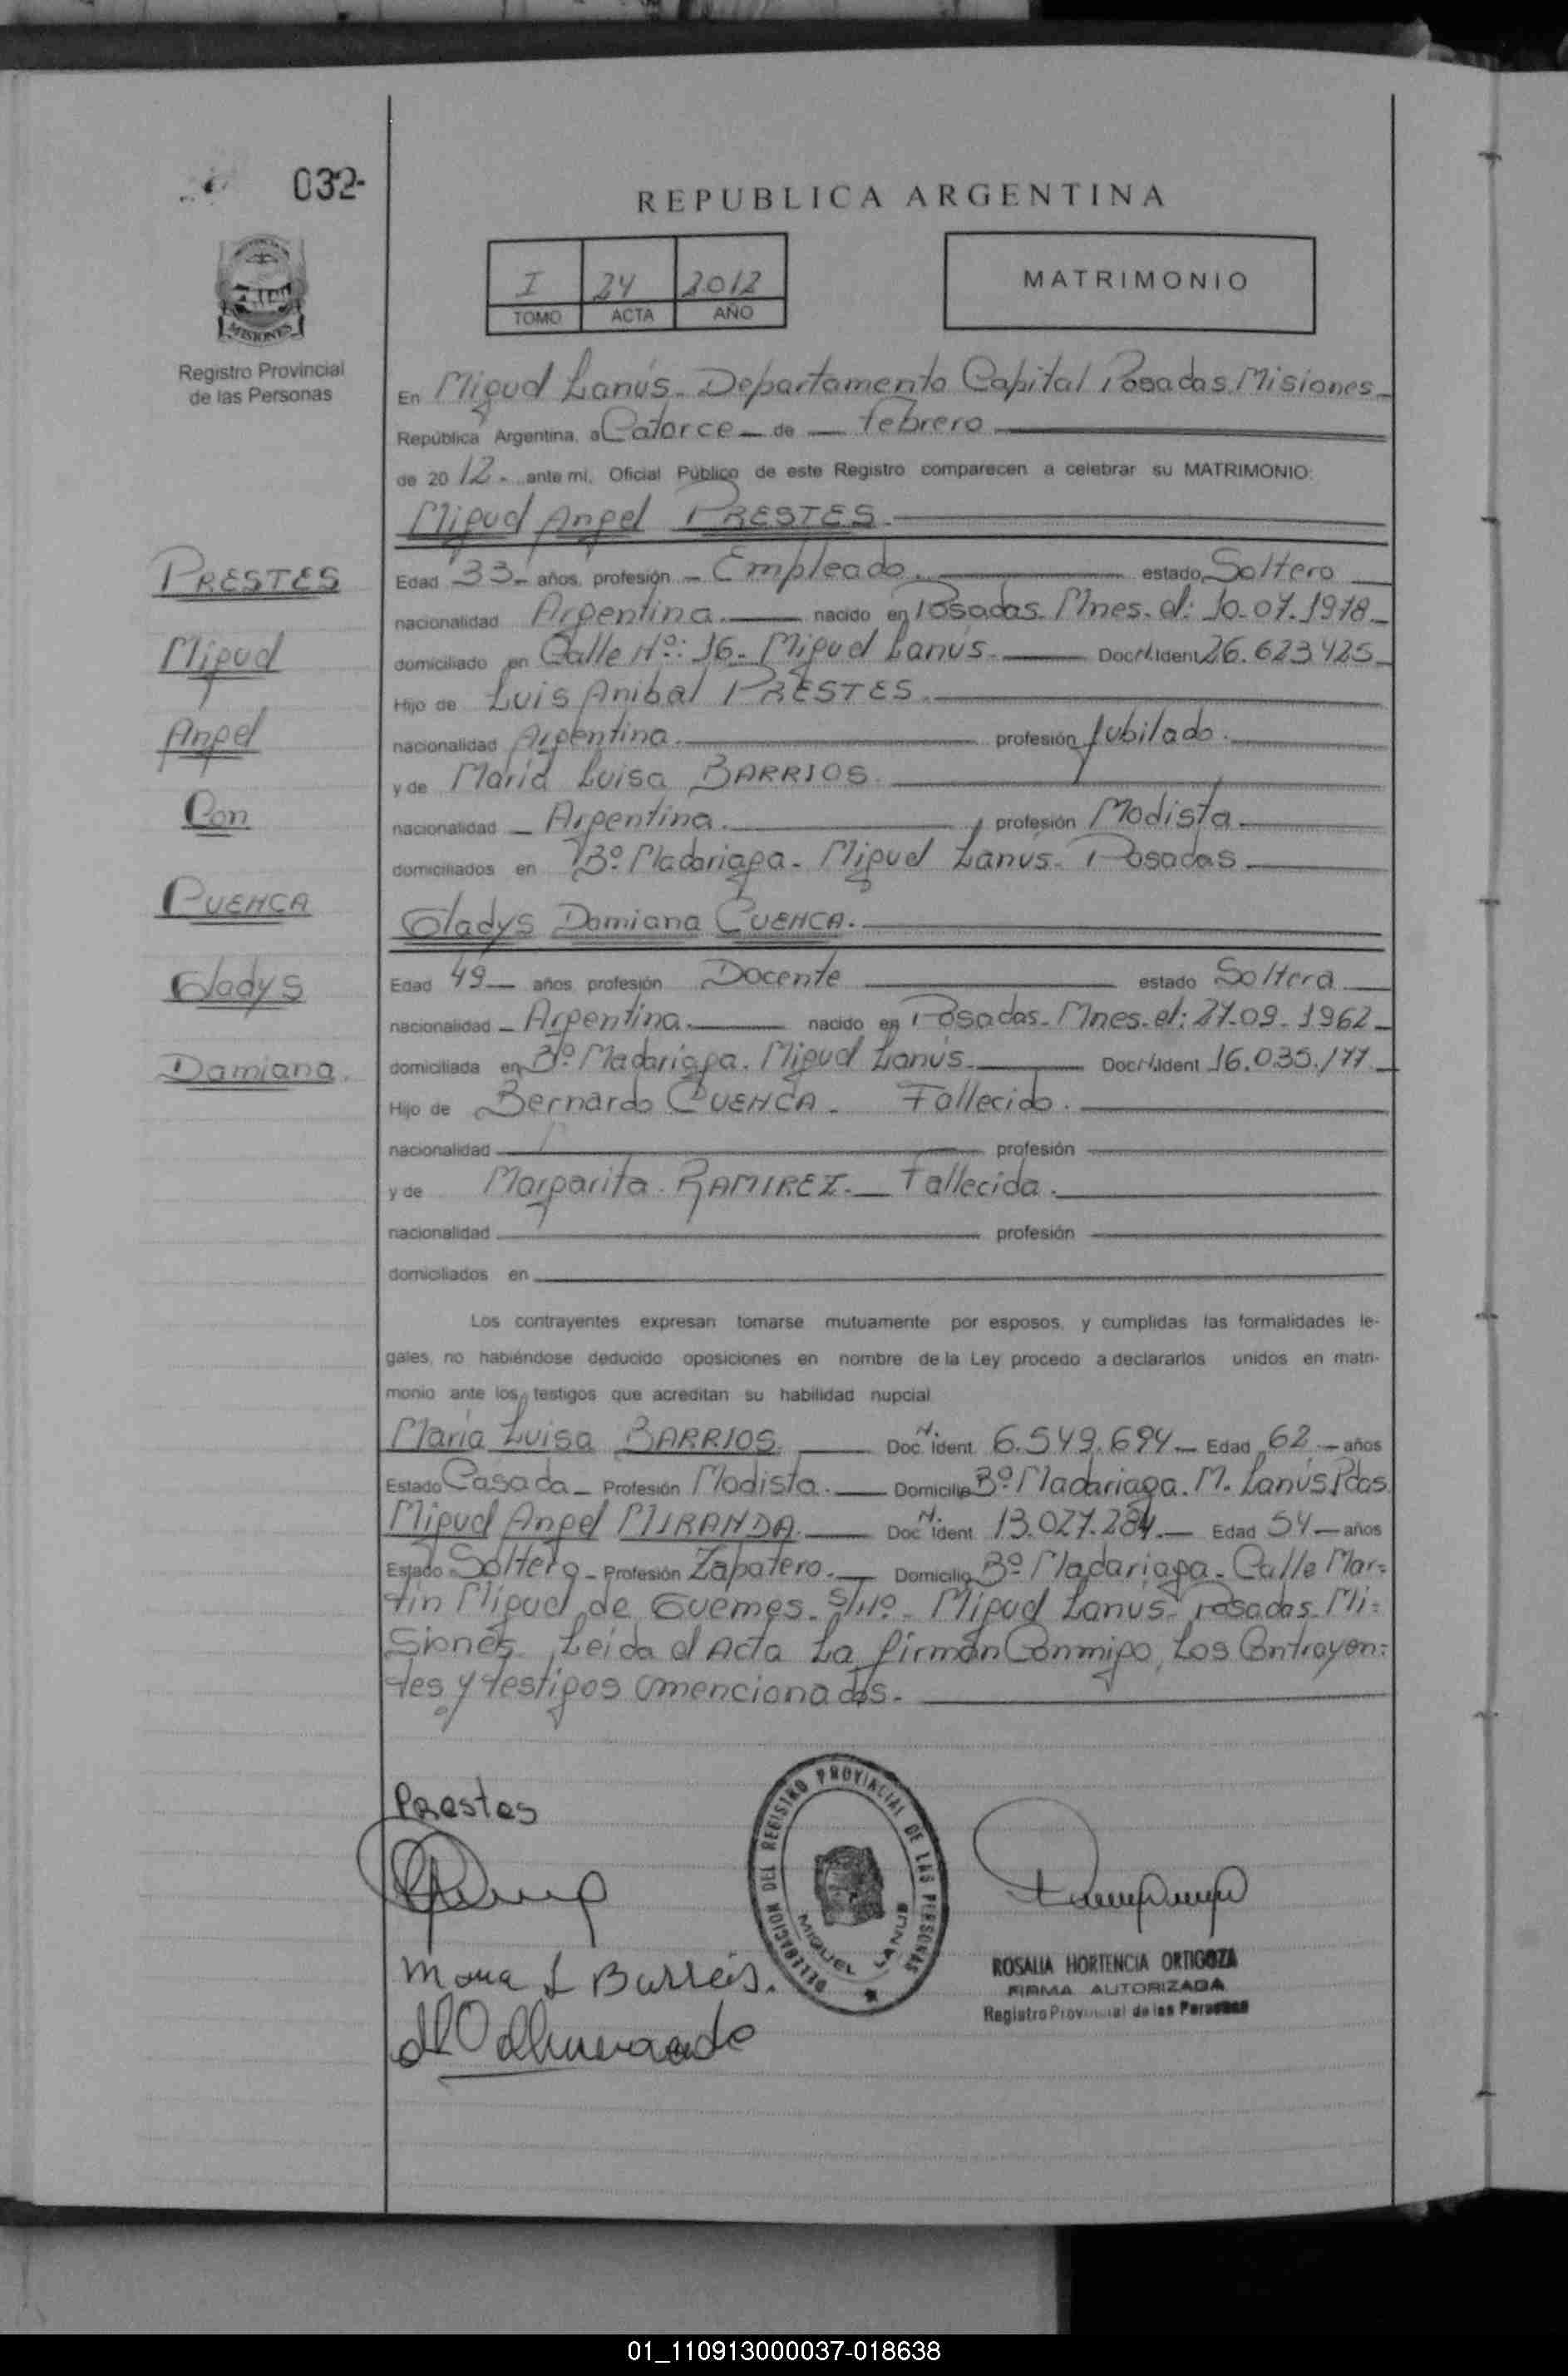 032-
REPUBLICA ARGENTINA
I 24 2012
TOMO ACTA AÑO
MATRIMONIO
MISIONES
Registro Provincial
de las Personas
En Miguel Lanús - Departamento Capital Posadas Misiones -
República Argentina, a Catorce - de - febrero
de 2012 - ante mi, Oficial Público de este Registro comparecen a celebrar su MATRIMONIO:
Miguel Angel PRESTES
PRESTES
Miguel
Angel
Con
CUENCA
Gladys
Damiana.
Edad 33 - años, profesión - Empleado. estado Soltero
nacionalidad Argentina. nacido en Posadas - Mnes. el: 10-07-1978 -
domiciliado en Calle Nº: 16 - Miguel Lanús. Doc. N. Ident 26.623.425 -
Hijo de Luis Anibal PRESTES.
nacionalidad Argentina. profesión Jubilado.
y de María Luisa BARRIOS.
nacionalidad - Argentina. profesión Modista
domiciliados en Bº Madariaga - Miguel Lanús - Posadas
Gladys Damiana CUENCA.
Edad 49 - años profesión Docente estado Soltera
nacionalidad - Argentina. nacido en Posadas - Mnes. el: 27-09-1962 -
domiciliada en Bº Madariaga. Miguel Lanús. Doc. N. Ident 16.035.177 -
Hijo de Bernardo CUENCA - Fallecido.
nacionalidad profesión
y de Margarita RAMIREZ - Fallecida.
nacionalidad profesión
domiciliados en
Los contrayentes expresan tomarse mutuamente por esposos, y cumplidas las formalidades le-
gales, no habiéndose deducido oposiciones en nombre de la Ley procedo a declararlos unidos en matri-
monio ante los testigos que acreditan su habilidad nupcial
María Luisa BARRIOS. Doc. N. Ident 6.549.694 - Edad 62 - años
Estado Casada - Profesión Modista. Domicilio Bº Madariaga. M. Lanús Pdas
Miguel Angel MIRANDA. Doc. N. Ident 13.027.284 - Edad 54 - años
Estado Soltero - Profesión Zapatero. Domicilio Bº Madariaga - Calle Mar=
tín Miguel de Guemes - S/Nº - Miguel Lanus - Posadas - Mi=
siones - Leida el Acta La firman Conmigo, Los Contrayen=
tes y testigos mencionados.
Prestes
DELEGACION DEL REGISTRO PROVINCIAL DE LAS PERSONAS
MIGUEL LANUS
Maria L Barrios.
ROSALIA HORTENCIA ORTIGOZA
FIRMA AUTORIZADA
Registro Provincial de las Personas
01_110913000037-018638